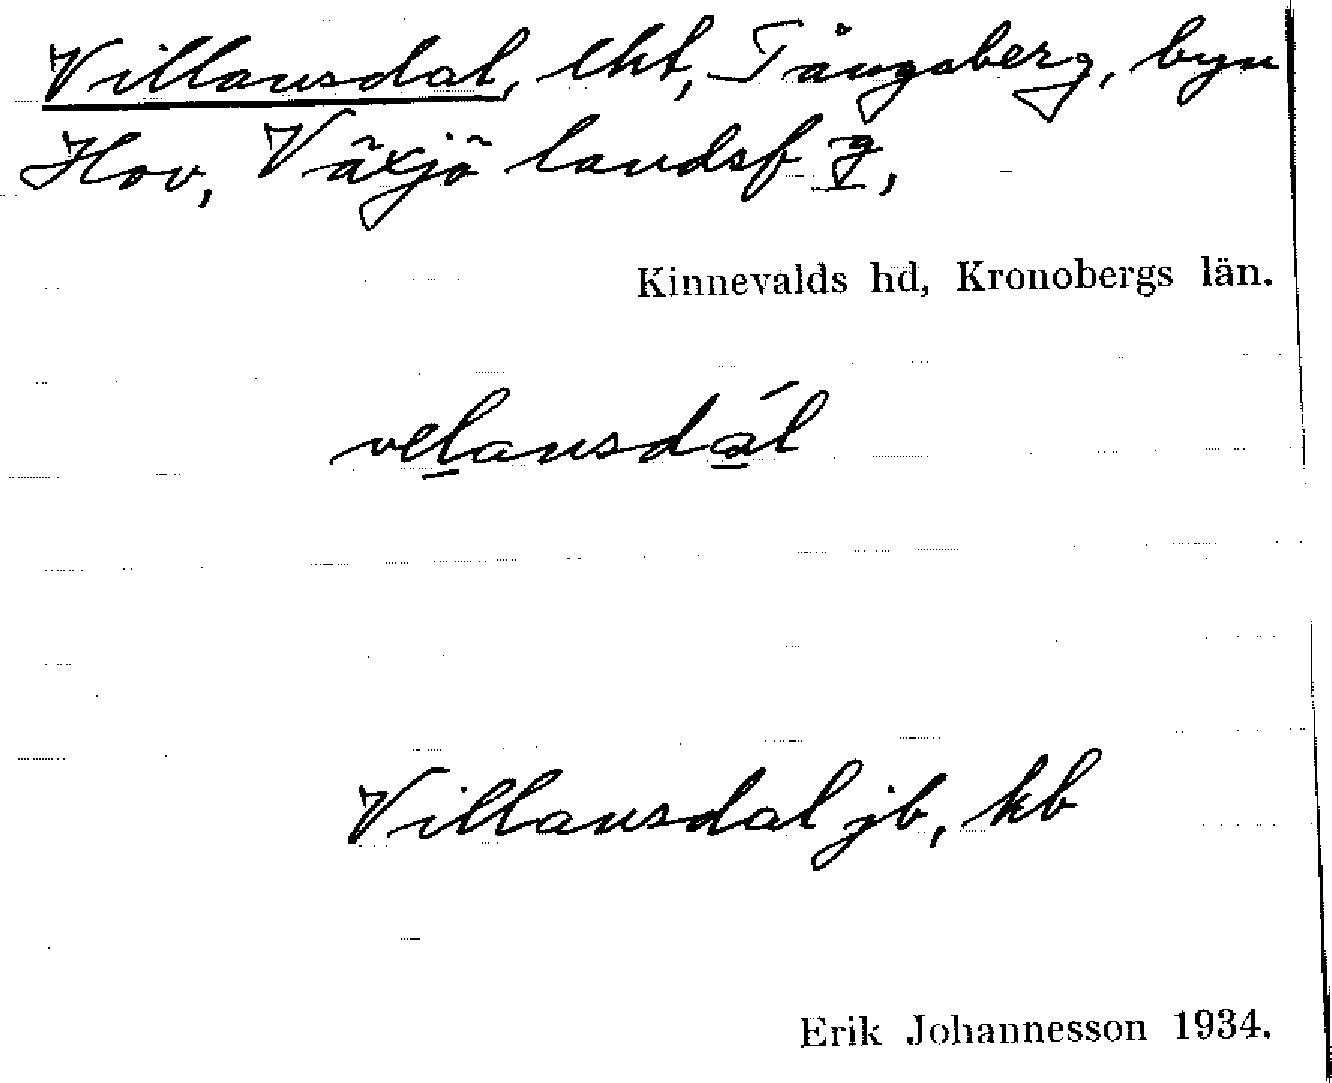 Villansdal, lht, Tångsberg, byn
Hov, Växjö landsf g,
Kinnevalds hd, Kronobergs län.
velansdál
Villansdal jb, kb
Erik Johannesson 1934.